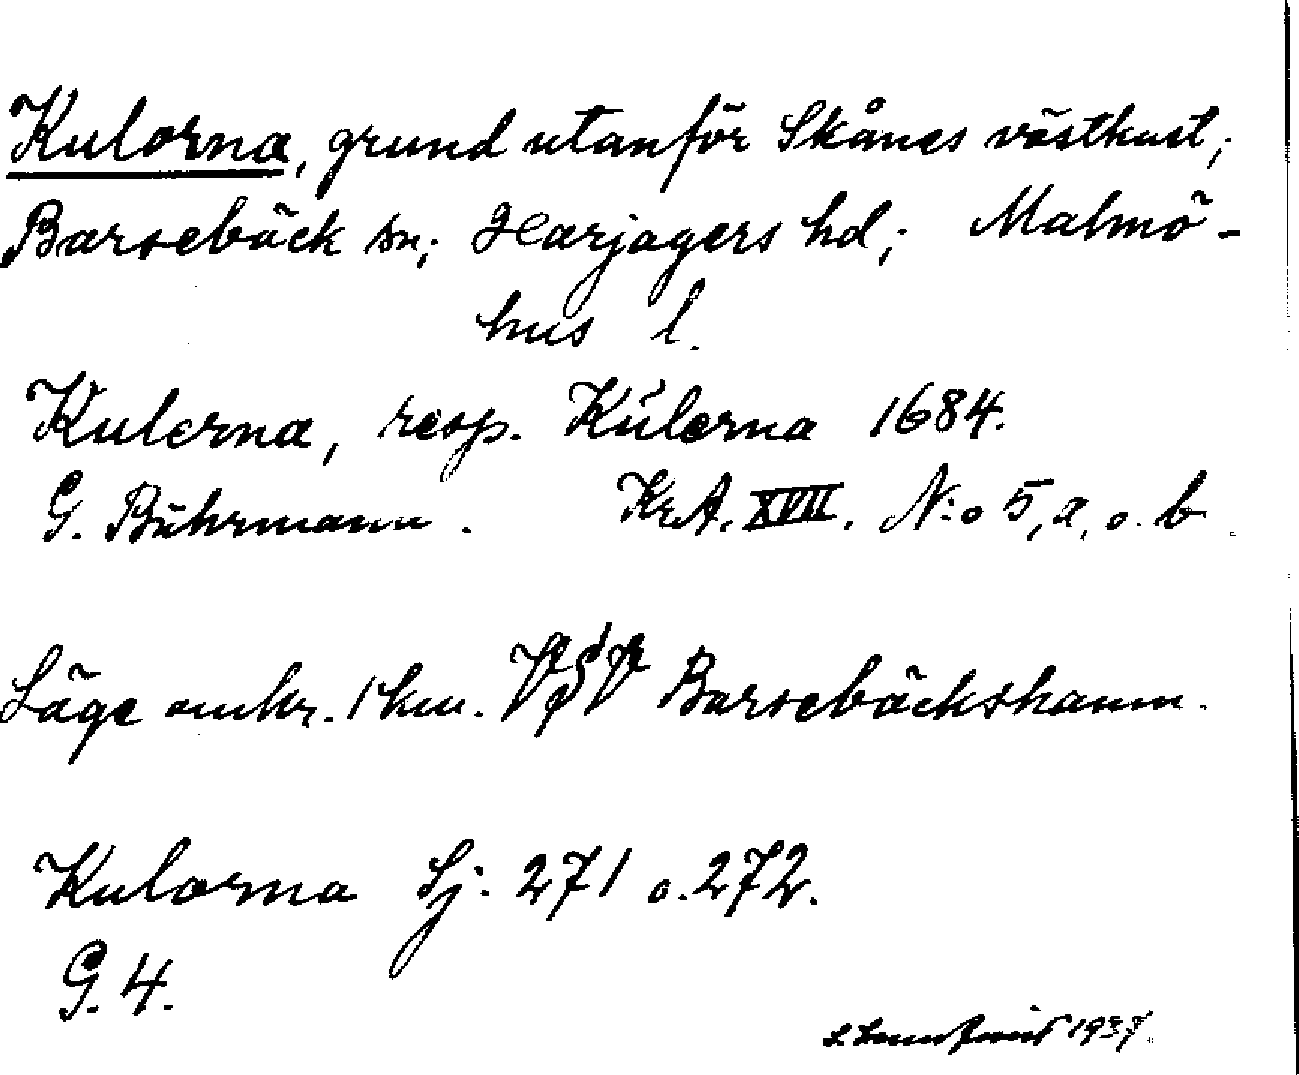 Kulorna, grund utanför Skånes västkust;
Barsebäck sn; Harjagers hd; Malmö-
hus l.
Kulerna, resp. Kŭlerna 1684.
G. Bŭhrmann. Kr.A. XVII. N:o 5, a, o. b.
Läge omkr. 1 km. VSV Barsebäckshamn.
Kulorna Sj. 271 o. 272.
G. 4.
1937.